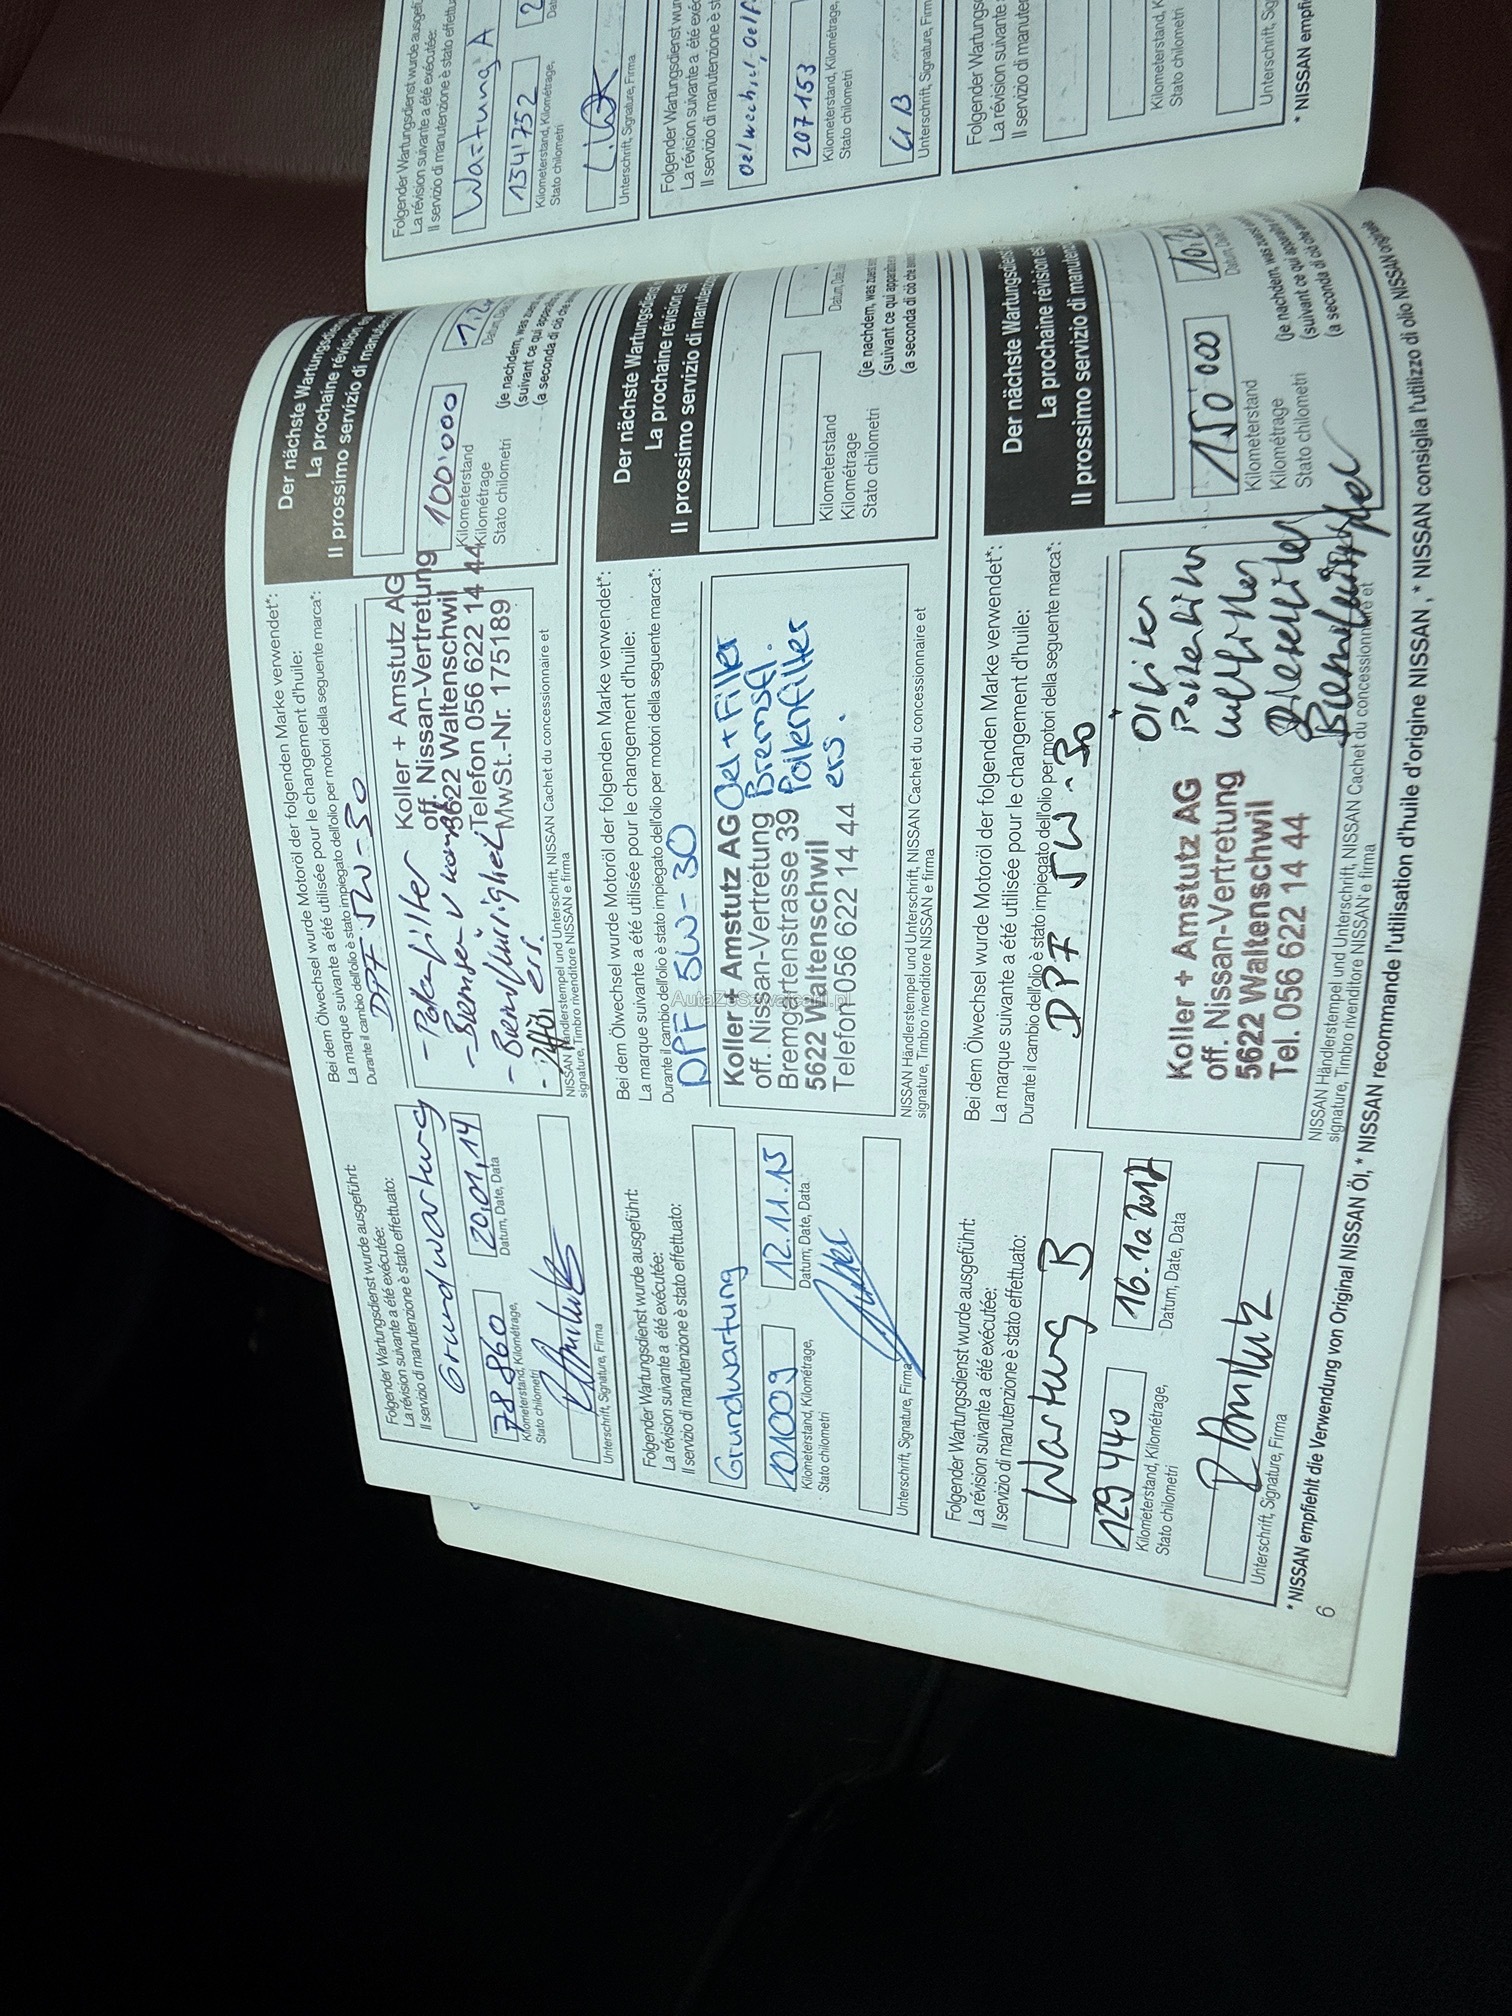 Folgender Wartungsdienst wurde ausgeführt:
La révision suivante a été exécutée:
Il servizio di manutenzione è stato effettuato:
Grundwartung
78860
20.01.14
Kilometerstand, Kilométrage,
Stato chilometri
Datum, Date, Data
Unterschrift, Signature, Firma
Bei dem Ölwechsel wurde Motoröl der folgenden Marke verwendet*:
La marque suivante a été utilisée pour le changement d'huile:
Durante il cambio dell'olio è stato impiegato dell'olio per motori della seguente marca*:
DPF 5W-30
- Pollenfilter
- Bremsen v
- Bremsflüssigkeit
ers.
Koller + Amstutz AG
off. Nissan-Vertretung
5622 Waltenschwil
Telefon 056 622 14 44
MwSt.-Nr. 175189
NISSAN Händlerstempel und Unterschrift, NISSAN Cachet du concessionnaire et
signature, Timbro rivenditore NISSAN e firma
Der nächste Wartungsdienst
La prochaine révision
Il prossimo servizio di
100'000
Kilometerstand
Kilométrage
Stato chilometri
(je nachdem, was
(suivant ce qui
(a seconda di ciò che
Folgender Wartungsdienst wurde ausgeführt:
La révision suivante a été exécutée:
Il servizio di manutenzione è stato effettuato:
Grundwartung
101009
12.11.15
Kilometerstand, Kilométrage,
Stato chilometri
Datum, Date, Data
Unterschrift, Signature, Firma
Bei dem Ölwechsel wurde Motoröl der folgenden Marke verwendet*:
La marque suivante a été utilisée pour le changement d'huile:
Durante il cambio dell'olio è stato impiegato dell'olio per motori della seguente marca*:
DPF 5W-30
Koller + Amstutz AG
off. Nissan-Vertretung
Bremgartenstrasse 39
5622 Waltenschwil
Telefon 056 622 14 44
Oel + Filter
Bremsfl.
Pollenfilter
ers.
NISSAN Händlerstempel und Unterschrift, NISSAN Cachet du concessionnaire et
signature, Timbro rivenditore NISSAN e firma
Der nächste Wartungsdienst
La prochaine révision est
Il prossimo servizio di
Kilometerstand
Kilométrage
Stato chilometri
(je nachdem, was
(suivant ce qui
(a seconda di ciò che
Folgender Wartungsdienst wurde ausgeführt:
La révision suivante a été exécutée:
Il servizio di manutenzione è stato effettuato:
Wartung B
129440
Kilometerstand, Kilométrage,
Stato chilometri
Datum, Date, Data
Amstutz
Unterschrift, Signature, Firma
Bei dem Ölwechsel wurde Motoröl der folgenden Marke verwendet*:
La marque suivante a été utilisée pour le changement d'huile:
Durante il cambio dell'olio è stato impiegato dell'olio per motori della seguente marca*:
DPF 5W-30
Koller + Amstutz AG
off. Nissan-Vertretung
5622 Waltenschwil
Tel. 056 622 14 44
Ölfilter
Pollenfilter
Luftfilter
Dieselfilter
NISSAN Händlerstempel und Unterschrift, NISSAN Cachet du concessionnaire et
signature, Timbro rivenditore NISSAN e firma
Der nächste Wartungsdienst
La prochaine révision est
Il prossimo servizio di
150'000
Kilometerstand
Kilométrage
Stato chilometri
(je nachdem, was
(suivant ce qui
(a seconda di ciò che
* NISSAN empfiehlt die Verwendung von Original NISSAN Öl, * NISSAN recommande l'utilisation d'huile d'origine NISSAN, * NISSAN consiglia l'utilizzo di olio NISSAN originale
6
Folgender Wartungsdienst wurde
La révision suivante a été
Il servizio di manutenzione è stato
Wartung A
134'752
Kilometerstand, Kilométrage,
Stato chilometri
Unterschrift, Signature, Firma
Folgender Wartungsdienst
La révision suivante a été
Il servizio di manutenzione è
Oelwechsel,
207153
Kilometerstand, Kilométrage,
Stato chilometri
Unterschrift, Signature,
Folgender Wartungsdienst
La révision suivante
Il servizio di
Kilometerstand,
Stato chilometri
Unterschrift,
* NISSAN
AutaZeSzwajcarii.pl